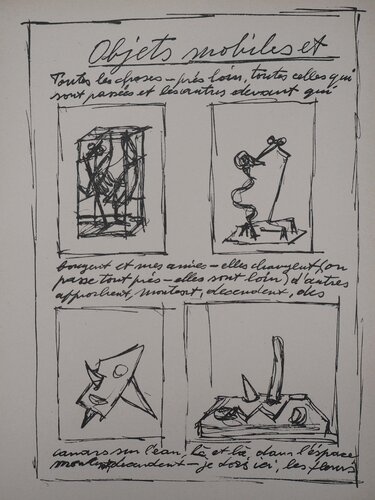 Objets mobiles et
Toutes les choses – près loin, toutes celles qui
sont passées et les autres devant qui
bougent et mes amies – elles changent (on
passe tout près – elles sont loin) d'autres
approchent, montent, descendent, des
canars sur l'eau, là et là, dans l'éspace
montent descendent – je dors ici, les fleurs